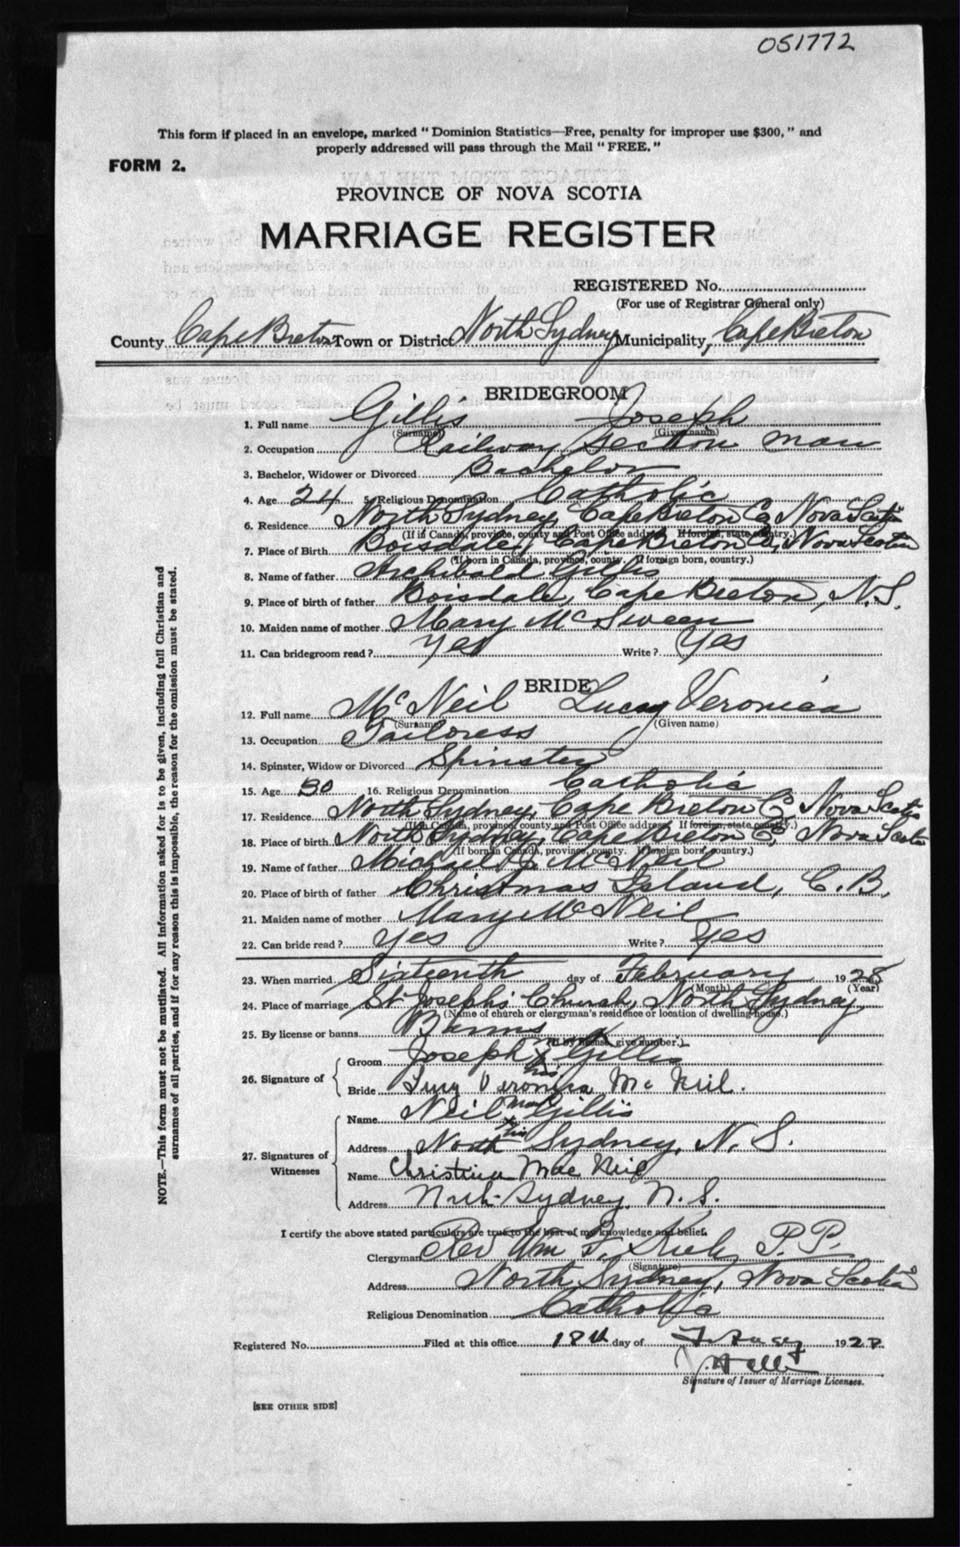 051772
This form if placed in an envelope, marked "Dominion Statistics—Free, penalty for improper use $300," and
properly addressed will pass through the Mail "FREE."
FORM 2.
PROVINCE OF NOVA SCOTIA
MARRIAGE REGISTER
REGISTERED No.
(For use of Registrar General only)
County Cape Breton Town or District North Sydney Municipality, Cape Breton
BRIDEGROOM
1. Full name Gillis Joseph
(Surname) (Given name)
2. Occupation Railway Section man
3. Bachelor, Widower or Divorced Bachelor
4. Age 24 5. Religious Denomination Catholic
6. Residence North Sydney, Cape Breton Co, Nova Scotia
(If in Canada, province, county and Post Office address. If foreign, state country.)
7. Place of Birth Boisdale, Cape Breton Co, Nova Scotia
(If born in Canada, province, county. If foreign born, country.)
8. Name of father Archibald Gillis
9. Place of birth of father Boisdale, Cape Breton, N.S.
10. Maiden name of mother Mary McSween
11. Can bridegroom read? Yes Write? Yes
BRIDE
12. Full name McNeil Lucy Veronica
(Surname) (Given name)
13. Occupation Tailoress
14. Spinster, Widow or Divorced Spinster
15. Age 30 16. Religious Denomination Catholic
17. Residence North Sydney, Cape Breton Co, Nova Scotia
(If in Canada, province, county and Post Office address. If foreign, state country.)
18. Place of birth North Sydney, Cape Breton Co, Nova Scotia
(If born in Canada, province, county. If foreign born, country.)
19. Name of father Michael J. McNeil
20. Place of birth of father Christmas Island, C.B.
21. Maiden name of mother Mary McNeil
22. Can bride read? Yes Write? Yes
23. When married Sixteenth day of February 1928
(Month) (Year)
24. Place of marriage St Joseph's Church, North Sydney
(Name of church or clergyman's residence or location of dwelling house.)
25. By license or banns Banns
(If by license, give number.)
26. Signature of
Groom Joseph X Gillis
his
Bride Lucy Veronica McNeil.
mark
27. Signatures of Witnesses
Name Neil Gillis
his
Address North Sydney, N.S.
Name Christina MacNeil
Address North Sydney N.S.
I certify the above stated particulars are true to the best of my knowledge and belief.
Clergyman Rev Wm P.P.
(Signature)
Address North Sydney, Nova Scotia
Religious Denomination Catholic
Registered No. Filed at this office 18th day of 1928
Signature of Issuer of Marriage Licenses.
[SEE OTHER SIDE]
NOTE.—This form must not be mutilated. All information asked for is to be given, including full Christian and
surnames of all parties, and if for any reason this is impossible, the reason for the omission must be stated.